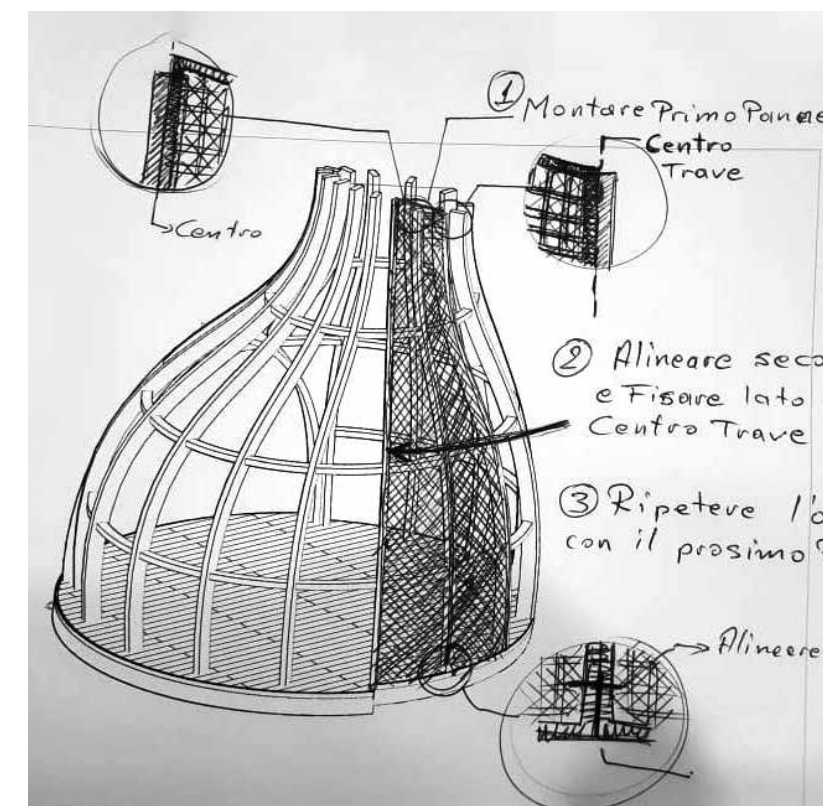 ① Montare Primo Pane
Centro
Trave
Centro
② Alineare seco
e Fisare lato
Centro Trave
③ Ripetere l'o
con il prosimo
Alineare